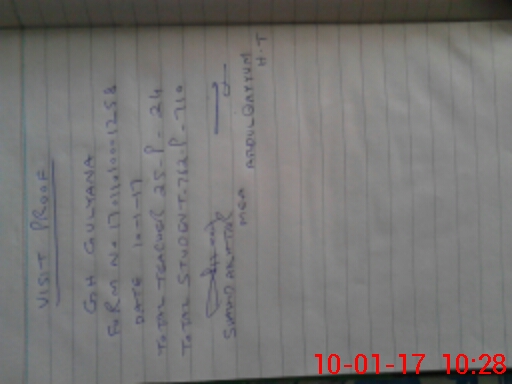 VISIT PROOF
GH GULYANA
FORM No
DATE 10-1-17
TOTAL TEACHER 25-P-24
TOTAL STUDENT-762-P-710
MEA
ABDUL QAYYUM
H.T
10-01-17 10:28